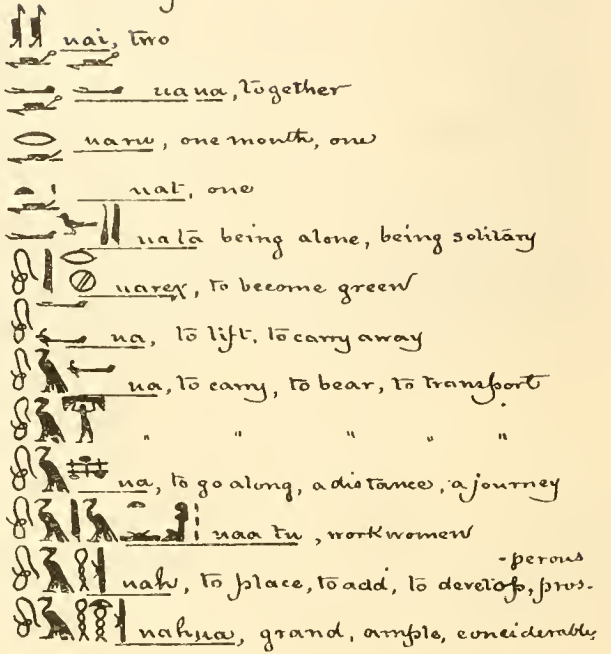 uai, two
uaua, together
uaru, one month, one
uat, one
uatā being alone, being solitary
uareχ, to become green
ua, to lift, to carry away
ua, to carry, to bear, to transport
" " " " "
ua, to go along, a distance, a journey
uaa tu, workwomen
uah, to place, to add, to develop, pros-
-perous
uahua, grand, ample, considerable,